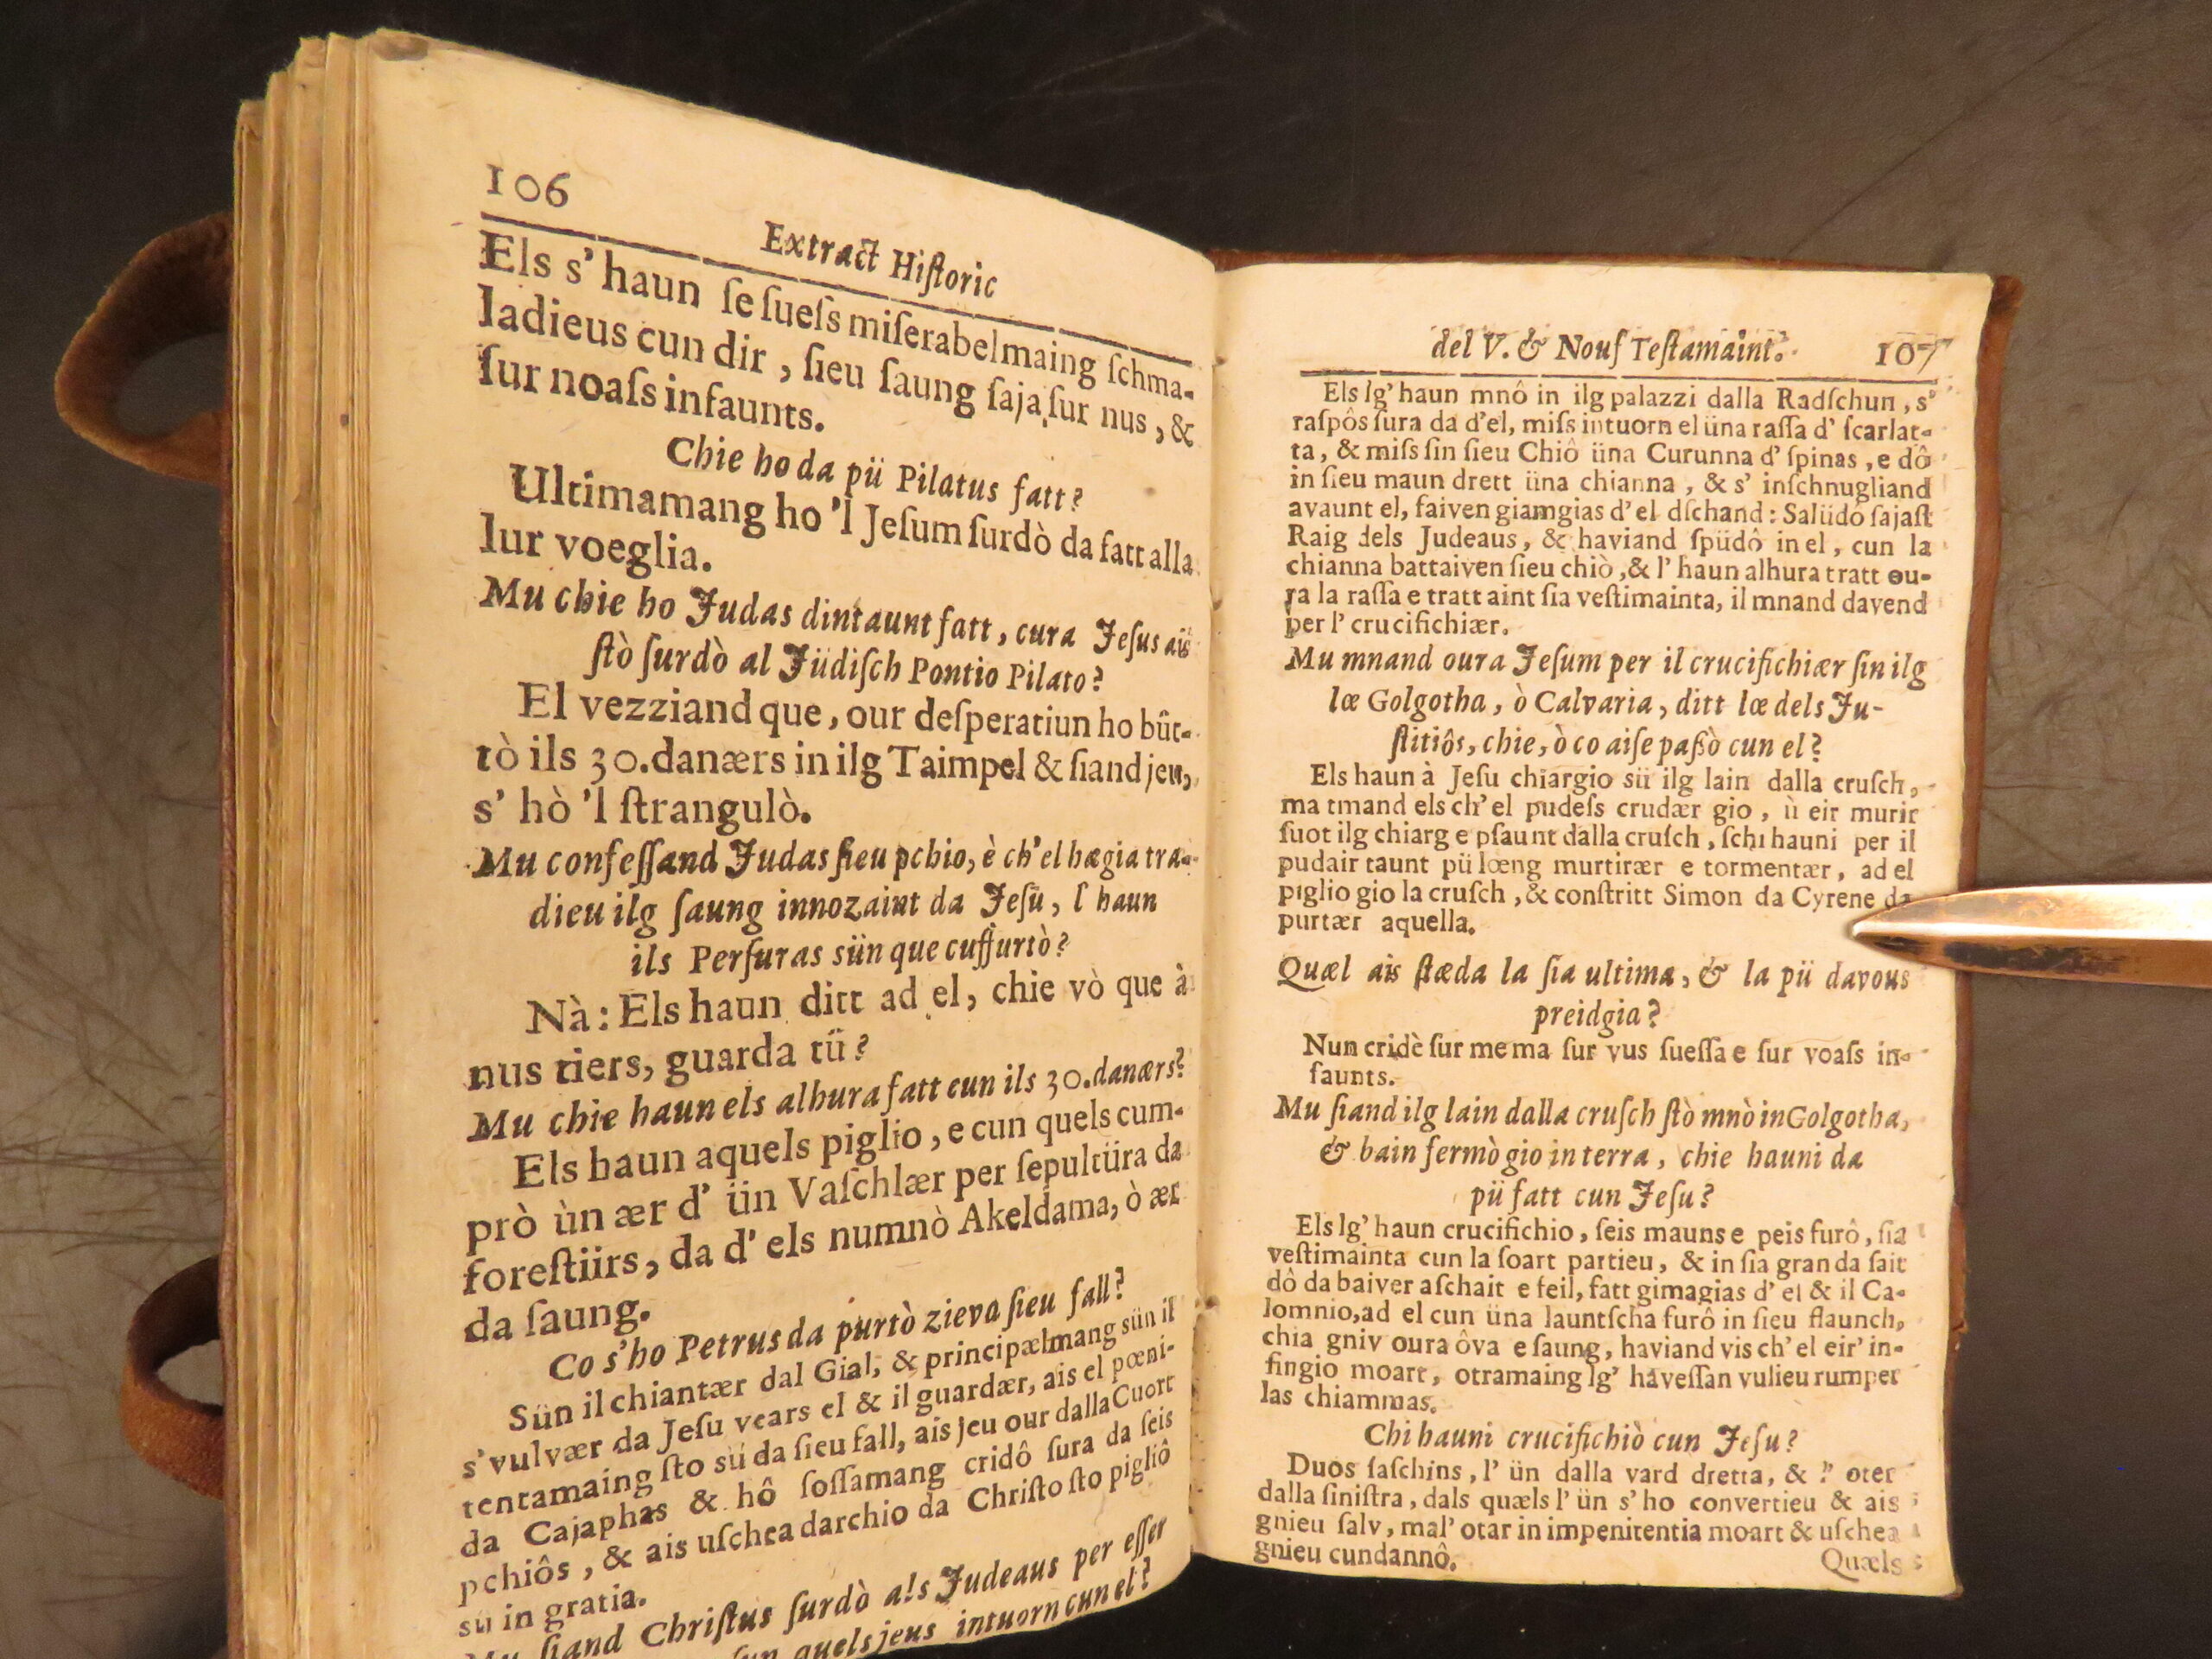 106
Extract Hiſtoric
Els s' haun ſe ſueſs miſerabelmaing ſchma-
ladieus cun dir, ſieu ſaung ſaja ſur nus, &
ſur noaſs infaunts.
Chie ho da pü Pilatus fatt?
Ultimamang ho 'l Jeſum ſurdò da fatt alla
lur voeglia.
Mu chie ho Judas dintaunt fatt, cura Jeſus ais
ſtò ſurdò al Jüdiſch Pontio Pilato?
El vezziand que, our deſperatiun ho bût-
tò ils 30. danærs in ilg Taimpel & ſiand jeu,
s' hò 'l ſtrangulò.
Mu confeſſand Judas ſieu pchio, è ch' el hægia tra-
dieu ilg ſaung innozaint da Jeſu, l' haun
ils Perſuras sün que cuffurtò?
Nà: Els haun ditt ad el, chie vò que à
nus tiers, guarda tü?
Mu chie haun els alhura fatt cun ils 30. danærs?
Els haun aquels piglio, e cun quels cum-
prò ùn ær d' ün Vaſchlær per ſepultüra da
foreſtiirs, da d' els numnò Akeldama, ò ær
da ſaung.
Co s' ho Petrus da purtò zieva ſieu fall?
Sün il chiantær dal Gial, & principælmang sün il
s' vulvær da Jeſu vears el & il guardær, ais el pœni-
tentamaing ſto sü da ſieu fall, ais jeu our dalla Cuort
da Cajaphas & hô ſoſſamang cridô ſura da ſeis
pchiôs, & ais uſchea darchio da Chriſto ſto pigliô
sü in gratia.
Mu ſiand Chriſtus ſurdò als Judeaus per eſſer
quels jeus intuorn cun el?
del V. & Nouf Teſtamaint. 107
Els lg' haun mnô in ilg palazzi dalla Radſchun, s'
raſpôs ſura da d'el, miſs intuorn el üna raſſa d' ſcarlat-
ta, & miſs ſin ſieu Chiô üna Curunna d' ſpinas, e dô
in ſieu maun drett üna chianna, & s' inſchnugliand
avaunt el, faiven giamgias d' el dſchand: Salüdô ſajaſt
Raig dels Judeaus, & haviand ſpüdô in el, cun la
chianna battaiven ſieu chiò, & l' haun alhura tratt ou-
ra la raſſa e tratt aint ſia veſtimainta, il mnand davend
per l' crucifichiær.
Mu mnand oura Jeſum per il crucifichiær ſin ilg
lœ Golgotha, ò Calvaria, ditt lœ dels Ju-
ſtitiôs, chie, ò co aiſe paſsò cun el?
Els haun à Jeſu chiargio sü ilg lain dalla cruſch,
ma tmand els ch' el pudeſs crudær gio, ù eir murir
ſuot ilg chiarg e pſaunt dalla cruſch, ſchi hauni per il
pudair taunt pü lœng murtirær e tormentær, ad el
piglio gio la cruſch, & conſtritt Simon da Cyrene da
purtær aquella.
Quæl ais ſtæda la ſia ultima, & la pü davous
preidgia?
Nun cridè ſur me ma ſur vus ſueſſa e ſur voaſs in-
faunts.
Mu ſiand ilg lain dalla cruſch ſtò mnò in Golgotha,
& bain fermò gio in terra, chie hauni da
pü fatt cun Jeſu?
Els lg' haun crucifichio, ſeis mauns e peis furô, ſia
veſtimainta cun la ſoart partieu, & in ſia granda ſait
dò da baiver aſchait e feil, fatt gimagias d' el & il Ca-
lomnio, ad el cun üna launtſcha furô in ſieu flaunch,
chia gniv oura ôva e ſaung, haviand vis ch' el eir' in-
fingio moart, otramaing lg' haveſſan vulieu rumper
las chiammas.
Chi hauni crucifichiò cun Jeſu?
Duos ſaſchins, l' ün dalla vard dretta, & l' oter
dalla ſiniſtra, dals quæls l' ün s' ho convertieu & ais
gnieu ſalv, mal' otar in impenitentia moart & uſchea
gnieu cundannô.
Quæls